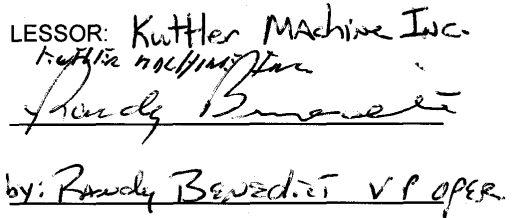 LESSOR: Kuttler Machine Inc.
Kuttler Machine Inc
Randy Benedict
by: Randy Benedict V P OPER.